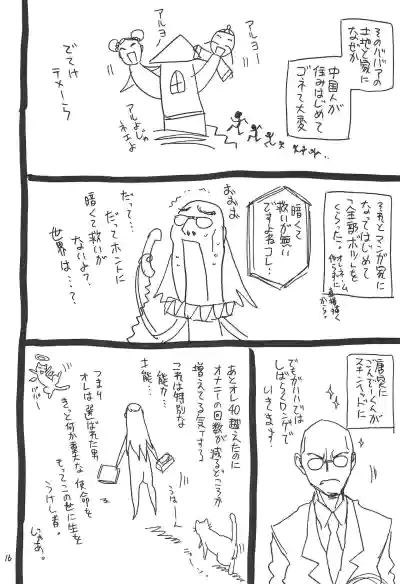 そのババアの
土地と家に
なぜか
中国人が
住みはじめて
ゴネて大変
アルヨー
アルヨー
でてけ
テメーら
アルよじゃ
ネェよ
マンガ家に
なってはじめて
全部ボツを
くらった…
暗くて
救いが無い
ですよねコレ…
おおお
だって…
だってホントに
暗くて救いが
ないよ?
世界は…?
唐突に
ごえでーくんが
スキンヘッドに
でもガハハでは
しばらくロン毛で
いきます!
あとオレ40越えたのに
オナニーの回数が減るどころか
増えてる気でする
これは特別な
能力…
才能…
つまり
オレは選ばれた男
きっと何か重大な使命を
もってこの世に生を
うけし者。
じゃあ。
うはーん
16